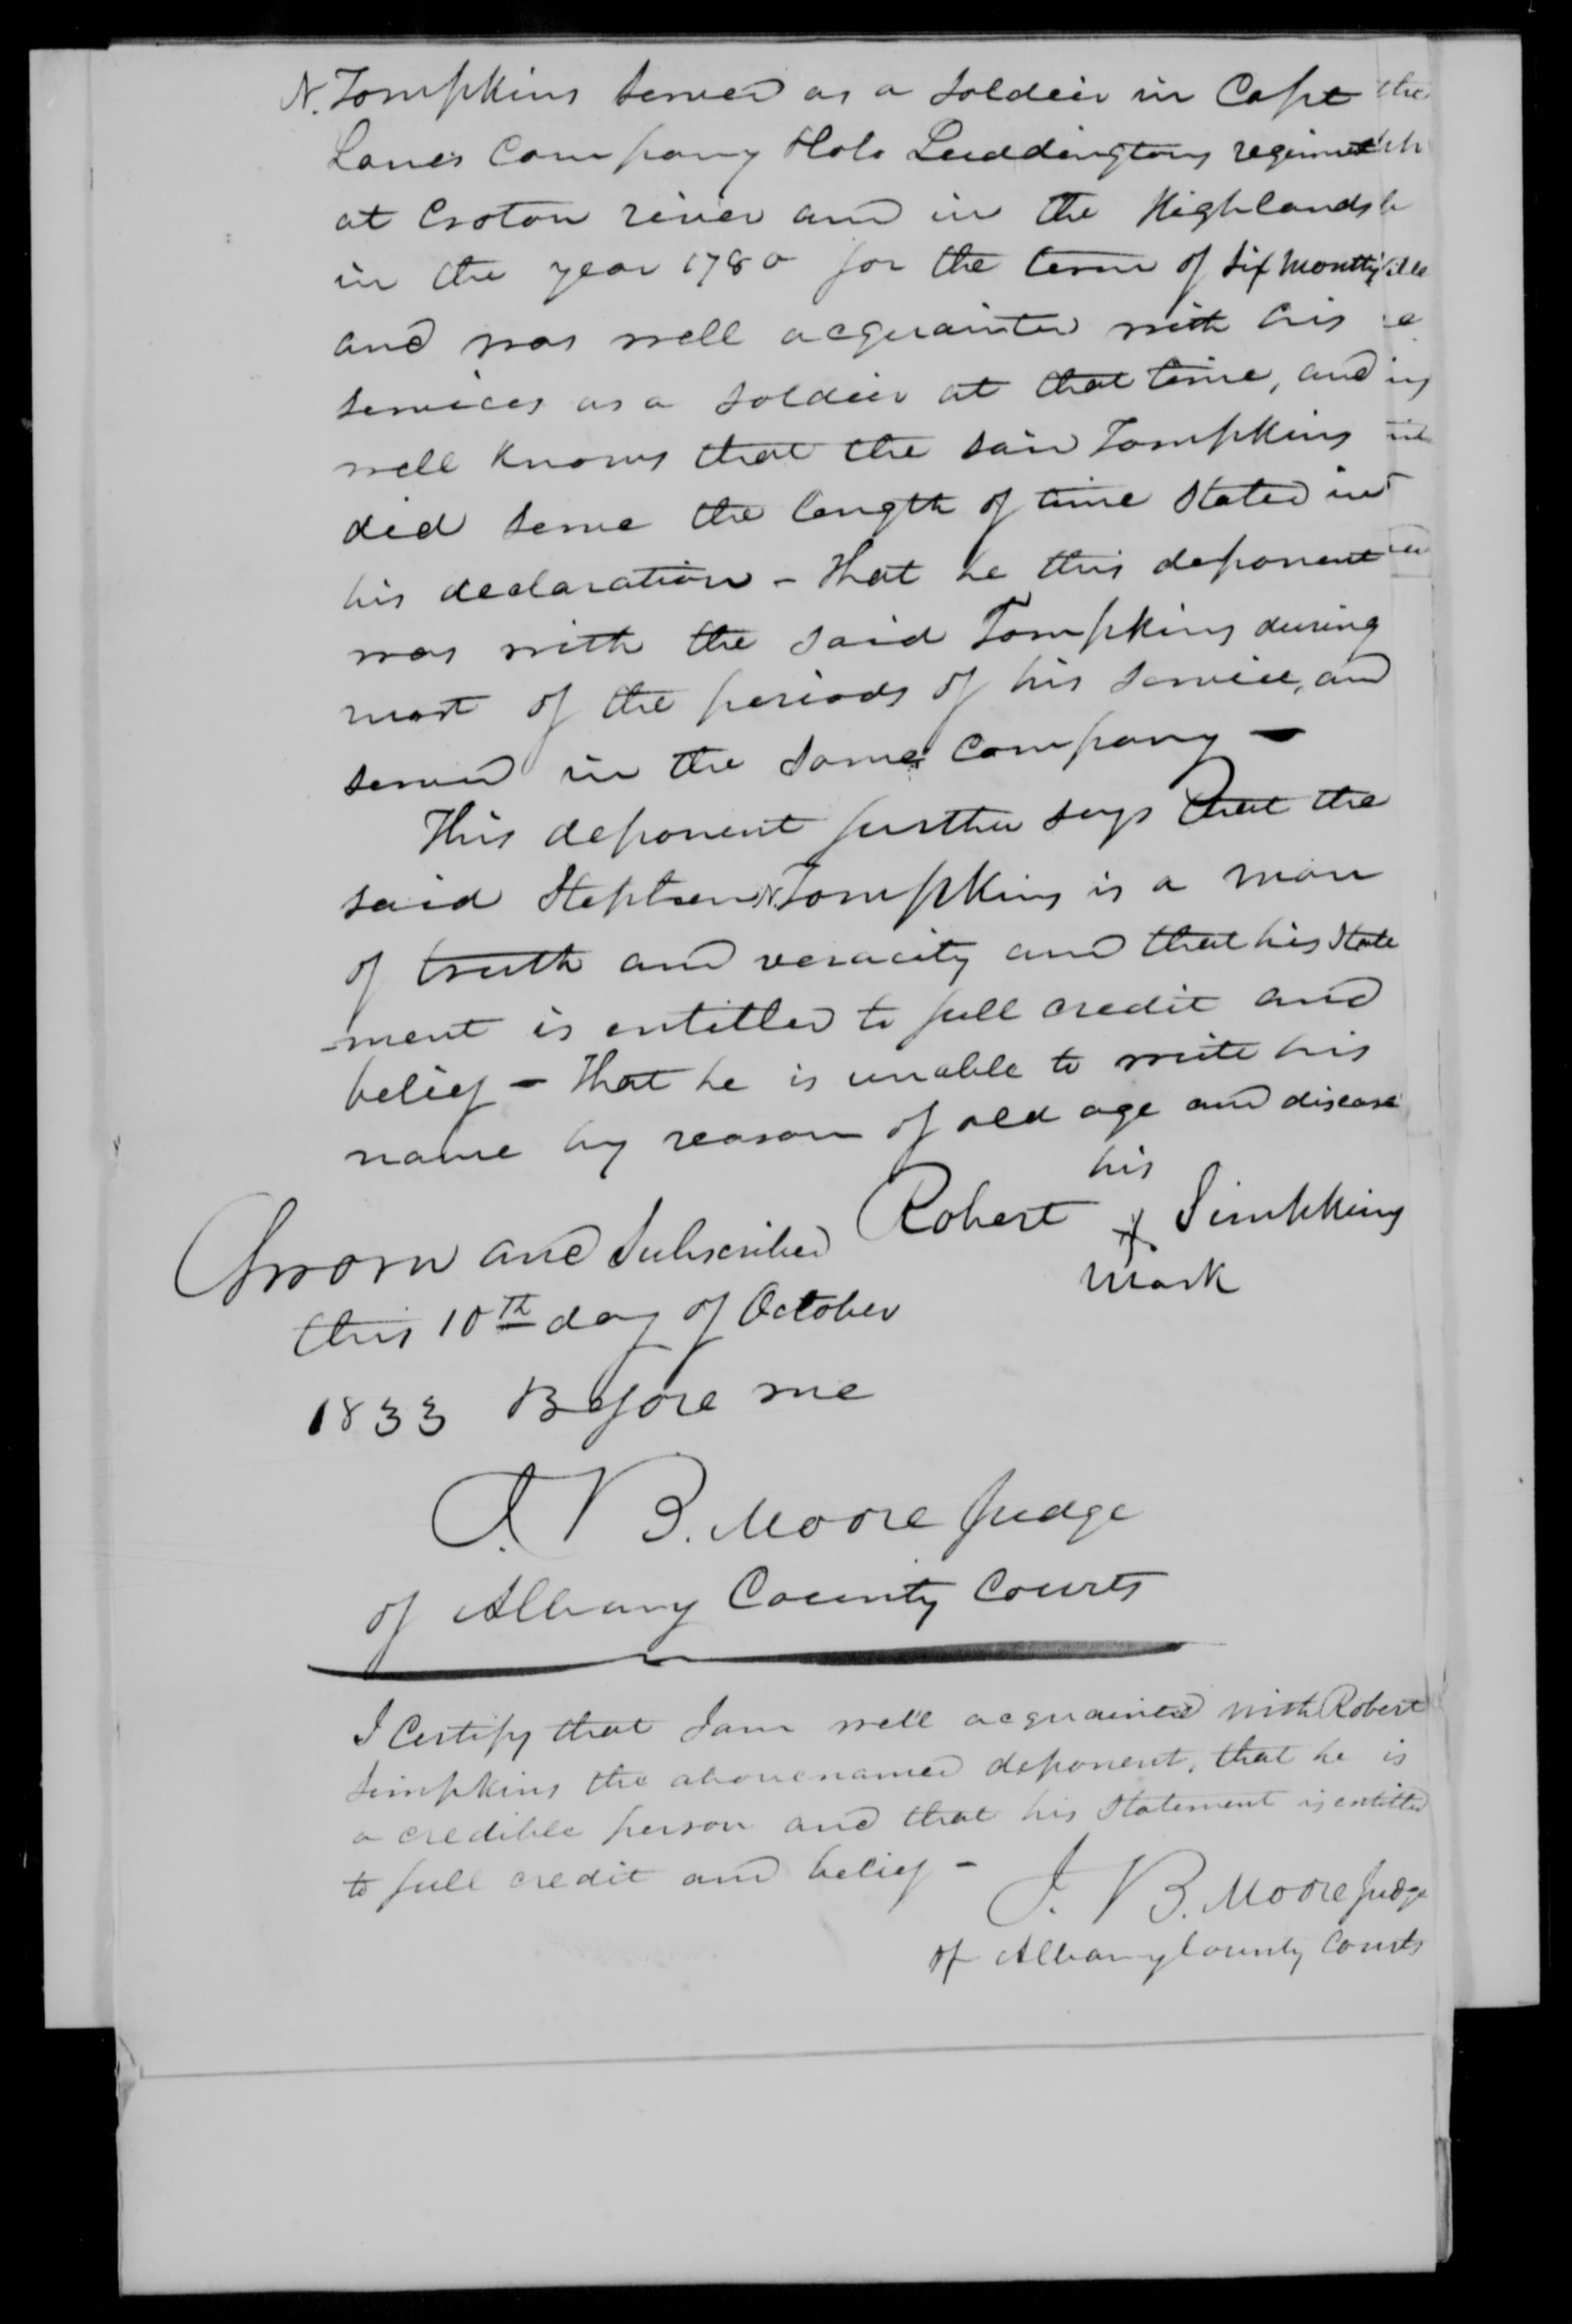 N. Tompkins served as a soldier in Capt
Lanes Company Colo Luddingtons regiment
at Croton river and in the Highlands
in the year 1780 for the term of six months
and was well acquainted with his
services as a soldier at that time, and
well knows that the said Tompkins
did serve the length of time stated in
his declaration - That he this deponent
was with the said Tompkins during
most of the periods of his service, and
served in the same company -
This deponent further says that the
said Stephen N. Tompkins is a man
of truth and veracity and that his state
-ment is entitled to full credit and
belief - That he is unable to write his
name by reason of old age and disease
his
Robert X Simpkins
mark
Sworn and Subscribed
this 10th day of October
1833 Before me
J. B. Moore Judge
of Albany County Courts
I Certify that I am well acquainted with Robert
Simpkins the above named deponent, that he is
a credible person and that his statement is entitled
to full credit and belief -
J. B. Moore Judge
of Albany County Courts